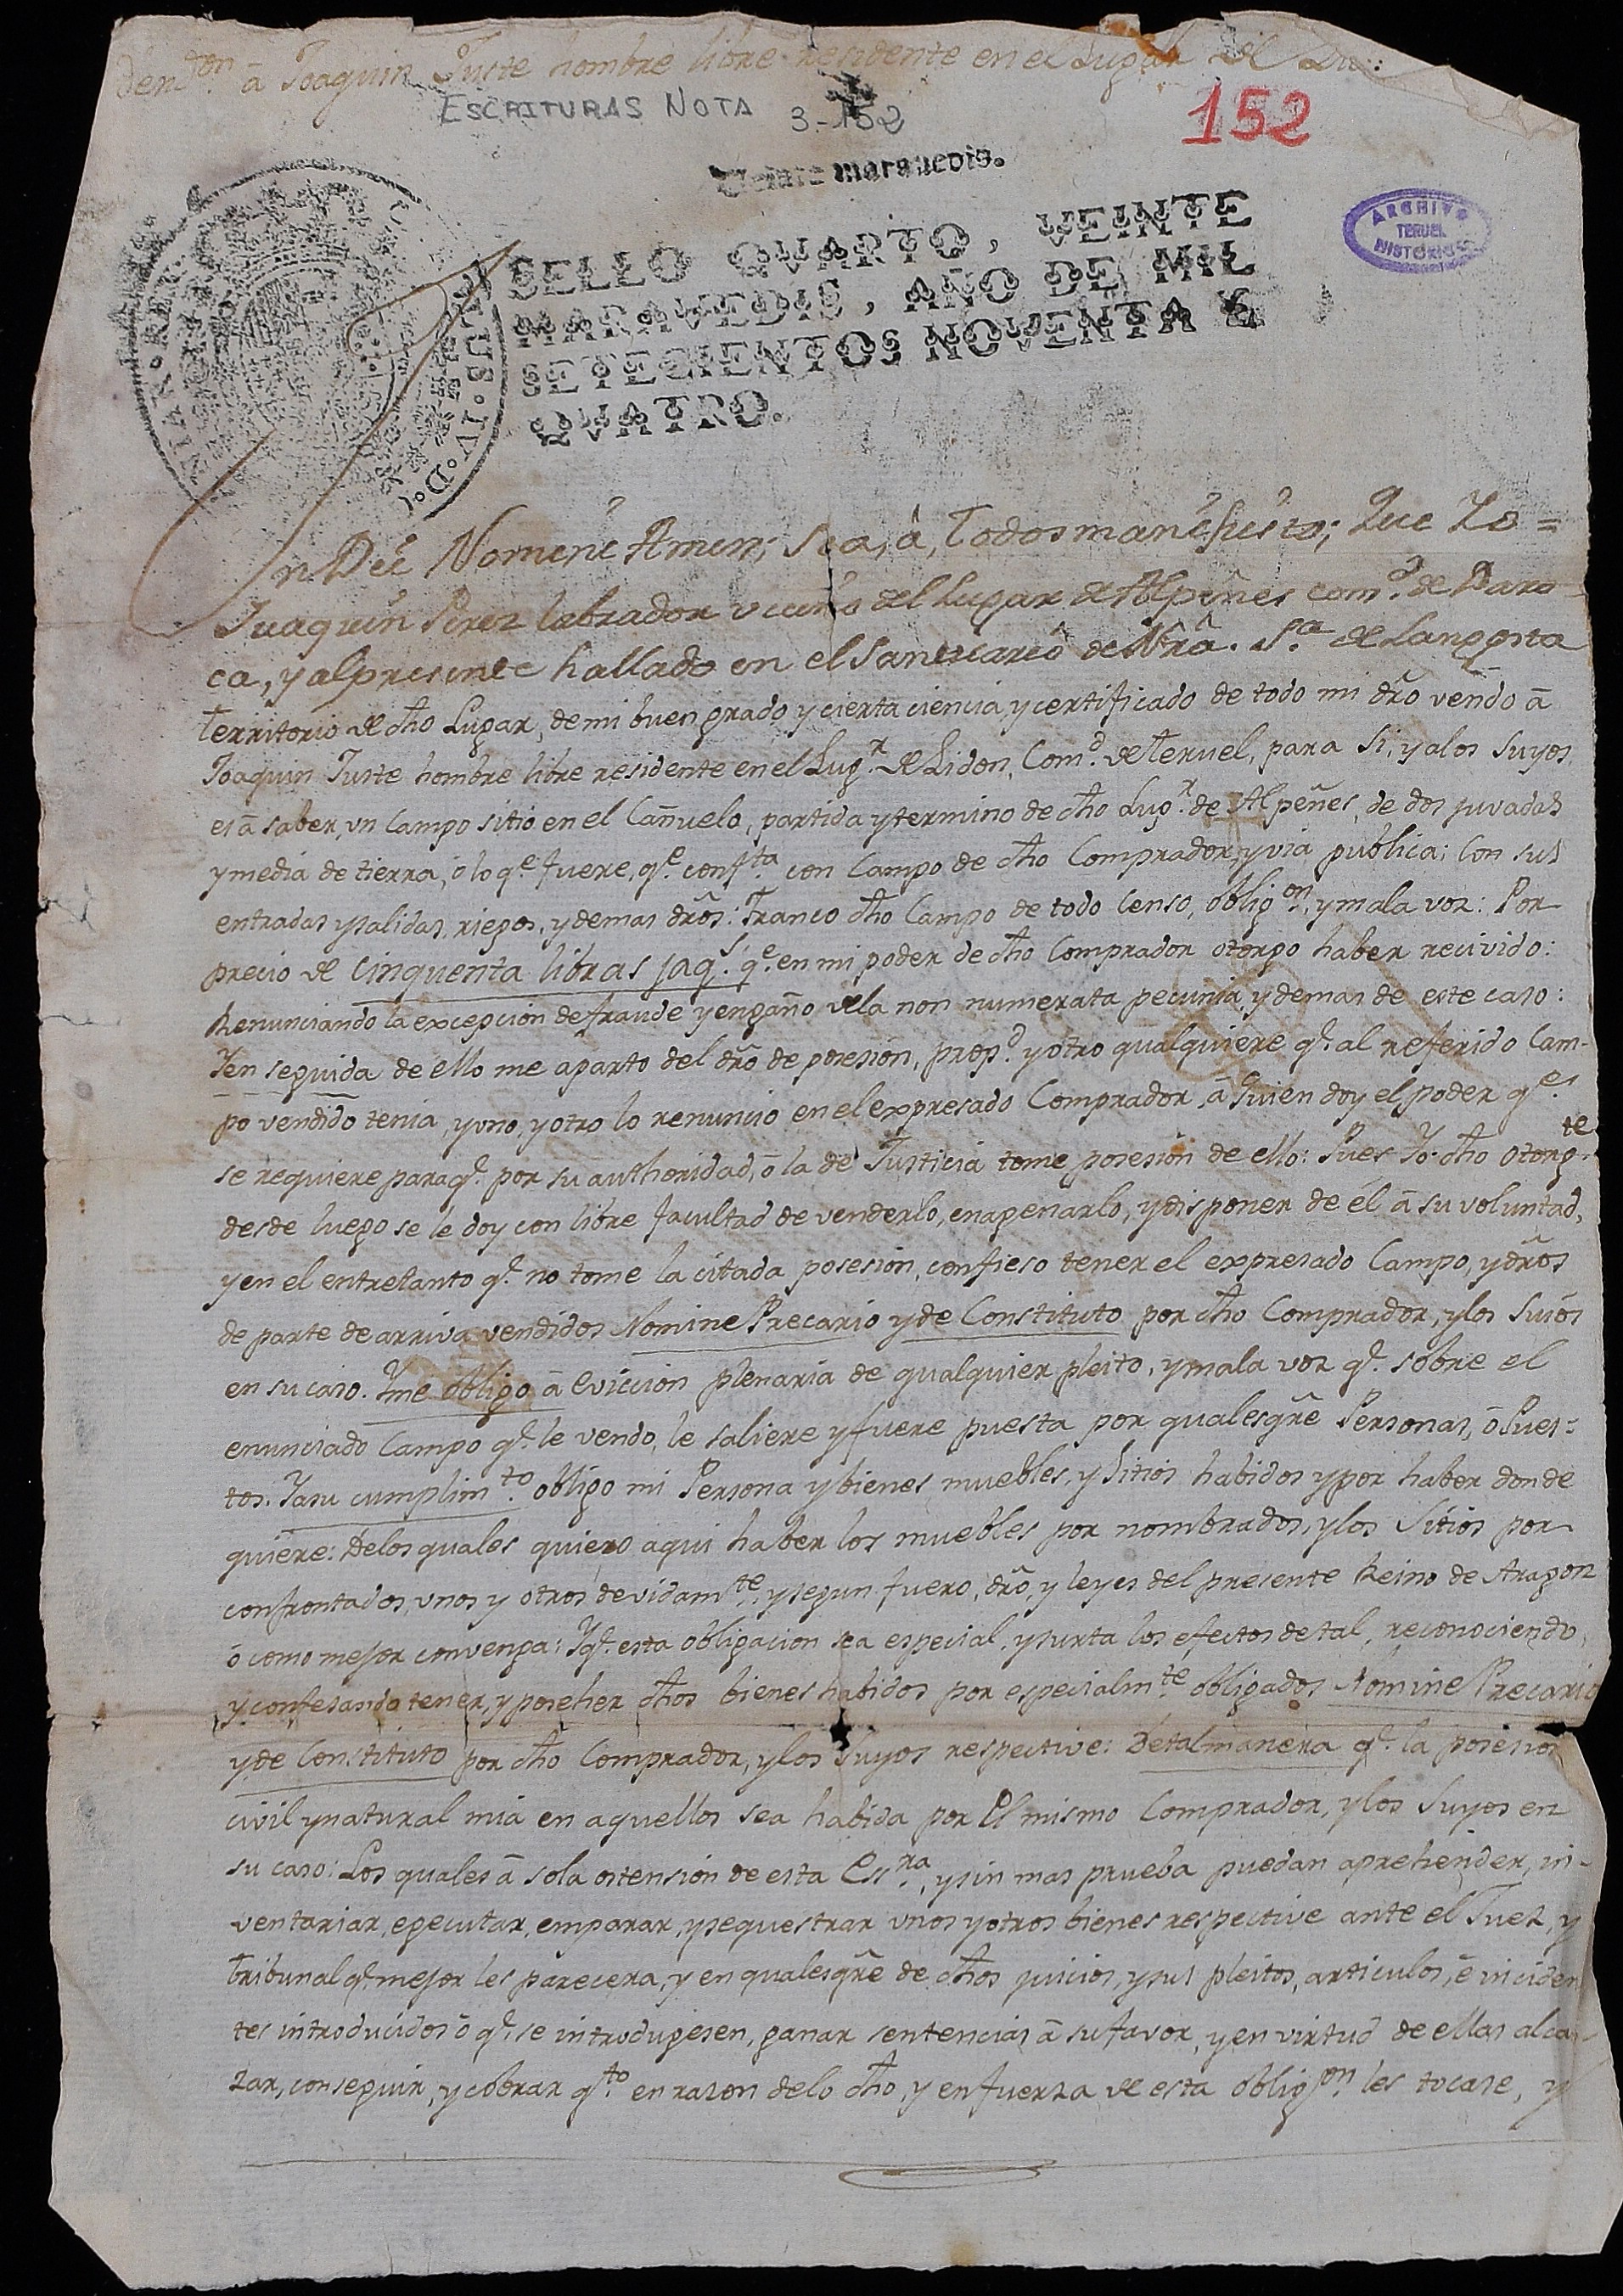 Vend.on â Joaquin Juste hombre libre residente en el Lugar de Li
ESCRITURAS NOTA 3-152
152
Veinte maravedis.
ARCHIVO
TERUEL
HISTORICO
SELLO QVARTO, VEINTE
MARAVEDIS, AÑO DE MIL
SETECIENTOS NOVENTA Y
QVATRO.
In Dei Nomine Amen; Sea, â, Todos manifiesto; Que Yo =
Juaquin Perez labrador vecino del Lugar de Alpeñes com.d de Daro
ca, y al presente hallado en el Santuario de Nrâ. S.ra de Langosta
territorio de dho Lugar, de mi buen grado y cierta ciencia, y certificado de todo mi dro vendo â
Joaquin Juste hombre libre residente en el Lug.r de Lidon, Com.d de Teruel, para si, y a los suyos,
es â saber, vn Campo sitio en el Cañuelo, partida y termino de dho Lug.r de Alpeñes, de dos juvadas
y media de tierra, ô lo q.e fuere, q.e conf.ta con Campo de dho Comprador, y via publica; Con sus
entradas y salidas, riegos, y demas dros: Franco dho Campo de todo Censo, oblig.on, y mala voz: Por
precio de Cinquenta libras jaq.s q.e en mi poder de dho Comprador otorgo haber recivido:
Renunciando la excepcion de fraude y engaño de la non numerata pecunia, y demas de este caso:
Y en seguida de ello me aparto del dro de posesion, prop.d y otro qualquiere q.e al referido Cam-
po vendido tenia, y uno, y otro lo renuncio en el expresado Comprador, â Quien doy el poder q.e
se requiere para q.e por su authoridad, ô la de Justicia tome posesion de ello: Pues Yo dho otorg.te
desde luego se le doy con libre facultad de venderlo, enagenarlo, y disponer de él â su voluntad,
y en el entretanto q.e no tome la citada posesion, confieso tener el expresado Campo, y dros
de parte de arriva vendidos Nomine Precario y de Constituto por dho Comprador, y los Suios
en su caso. Y me obligo â eviccion plenaria de qualquier pleito, y mala voz q.e sobre el
enunciado Campo q.e le vendo, le saliere y fuere puesta por qualesqre Personas, ô Pues-
tos. Y a su cumplim.to obligo mi Persona y bienes muebles, y Sitios habidos y por haber donde
quiere: De los quales quiero aqui haber los muebles por nombrados, y los Sitios por
confrontados, vnos y otros devidam.te, y segun fuero, dro, y leyes del presente Reino de Aragon
ô como mejor convenga: Y q.e esta obligacion sea especial, y surta los efectos de tal, reconociendo,
y confesando tener, y poseher dhos bienes habidos por especialm.te obligados Nomine Precario
y de Constituto por dho Comprador, y los Suyos respective: De tal manera q.e la posesion
civil y natural mia en aquellos sea habida por el mismo Comprador, y los Suyos en
su caso: Los quales â sola ostension de esta Ess.ra, y sin mas prueba puedan aprehender, in-
ventariar, egecutar, emparar, y sequestrar vnos y otros bienes respective ante el Juez, y
tribunal q.e mejor les parecera, y en qualesqre de dhos juicios, y sus pleitos, articulos, ê inciden
tes introducidos ô q.e se introdugesen, ganar sentencias â su favor, y en virtud de ellas alcan-
zar, conseguir, y cobrar q.to en razon de lo dho, y en fuerza de esta oblig.on les tocase, y